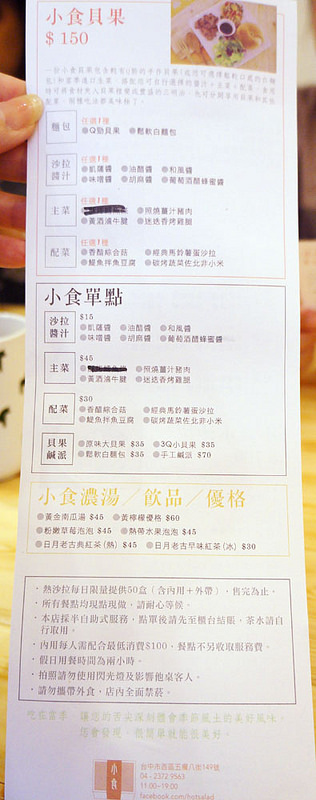 小食貝果
$ 150
麵包
任選1種
Q勁貝果 鬆軟白麵包
沙拉醬汁
任選1種
凱薩醬 油醋醬 和風醬
味噌醬 胡麻醬 葡萄酒醋蜂蜜醬
主菜
任選1種
照燒薑汁豬肉
黃酒滷牛腱 迷迭香烤雞腿
配菜
任選1種
香醋綜合菇 經典馬鈴薯蛋沙拉
鯷魚拌魚豆腐 碳烤蔬菜佐北非小米
小食單點
沙拉醬汁
$15
凱薩醬 油醋醬 和風醬
味噌醬 胡麻醬 葡萄酒醋蜂蜜醬
主菜
$45
照燒薑汁豬肉
黃酒滷牛腱 迷迭香烤雞腿
配菜
$30
香醋綜合菇 經典馬鈴薯蛋沙拉
鯷魚拌魚豆腐 碳烤蔬菜佐北非小米
貝果鹹派
原味大貝果 $35 3Q小貝果 $35
鬆軟白麵包 $35 手工鹹派 $70
小食濃湯/飲品/優格
黃金南瓜湯 $45 黃檸檬優格 $60
粉嫩草莓泡泡 $45 熱帶水果泡泡 $45
日月老古典紅茶(熱) $45 日月老古早味紅茶(冰) $30
・熱沙拉每日限量提供50盒(含內用+外帶),售完為止。
・所有餐點均現點現做,請耐心等候。
・本店採半自助式服務,點單後請先至櫃台結帳,茶水請自行取用。
・內用每人需配合最低消費$100,餐點不另收取服務費。
・假日用餐時間為兩小時。
・拍照請勿使用閃光燈及影響他桌客人。
・請勿攜帶外食,店內全面禁菸。
吃在當季,讓您的舌尖深刻體會季節風土的美好風味。
您會發現,很簡單就能很美好。
小食
台中市西區五權八街149號
04 - 2372 9563
11:00~19:00
facebook.com/hotsalad